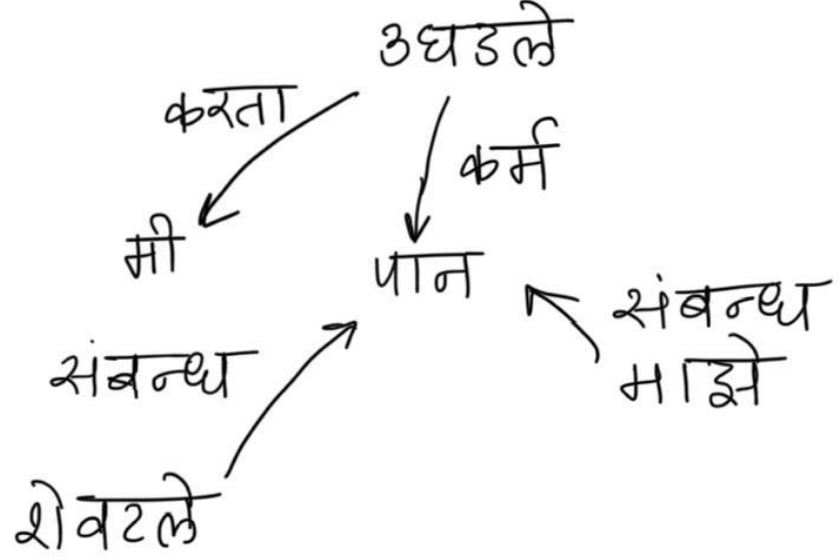 उघडले
करता
कर्म
मी
पान
संबन्ध
माझे
संबन्ध
शेवटले